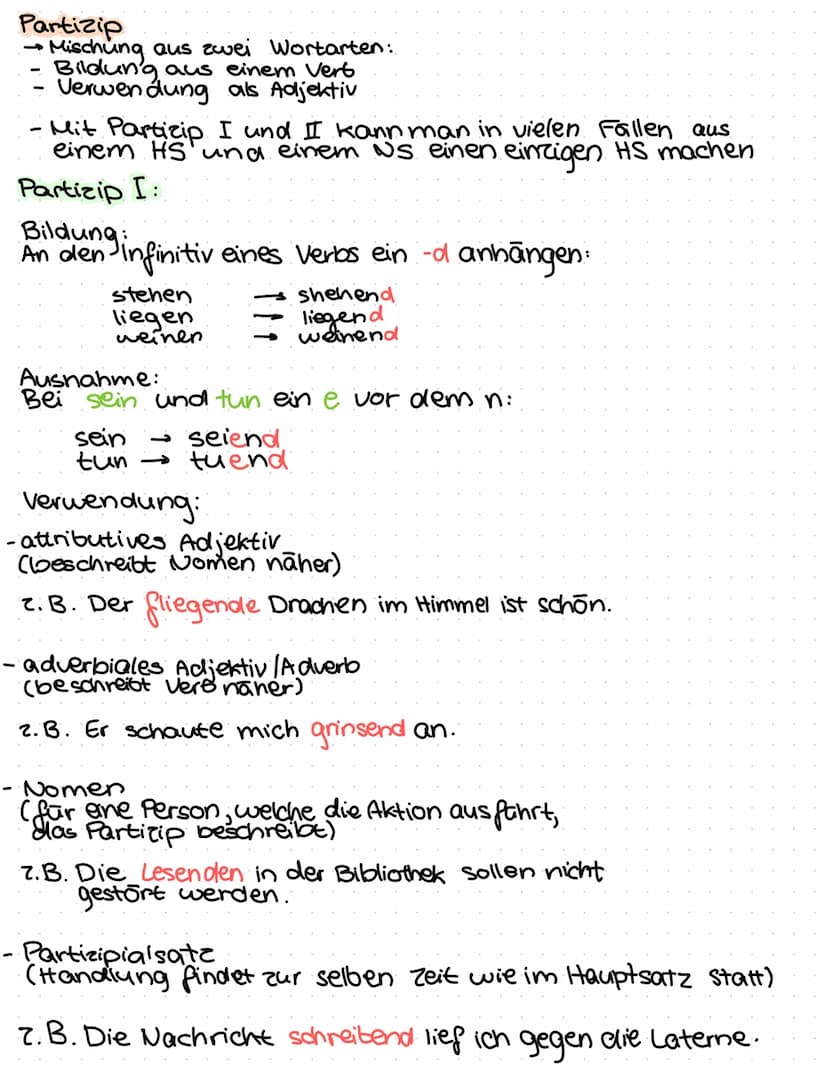 Partizip
→ Mischung aus zwei Wortarten:
- Bildung aus einem Verb
- Verwendung als Adjektiv
- Mit Partizip I und II kann man in vielen Fällen aus
einem HS und einem NS einen einzigen HS machen
Partizip I:
Bildung:
An den Infinitiv eines Verbs ein -d anhängen:
stehen → shehend
liegen → liegend
weinen → weinend
Ausnahme:
Bei sein und tun ein e vor dem n:
sein → seiend
tun → tuend
Verwendung:
- attributives Adjektiv
(beschreibt Nomen näher)
z.B. Der fliegende Drachen im Himmel ist schön.
- adverbiales Adjektiv/Adverb
(beschreibt Verb näher)
z.B. Er schaute mich grinsend an.
- Nomen
(für eine Person, welche die Aktion ausführt,
das Partizip beschreibt)
z.B. Die Lesenden in der Bibliothek sollen nicht
gestört werden.
- Partizipialsatz
(Handlung findet zur selben Zeit wie im Hauptsatz statt)
z.B. Die Nachricht schreibend lief ich gegen die Laterne.